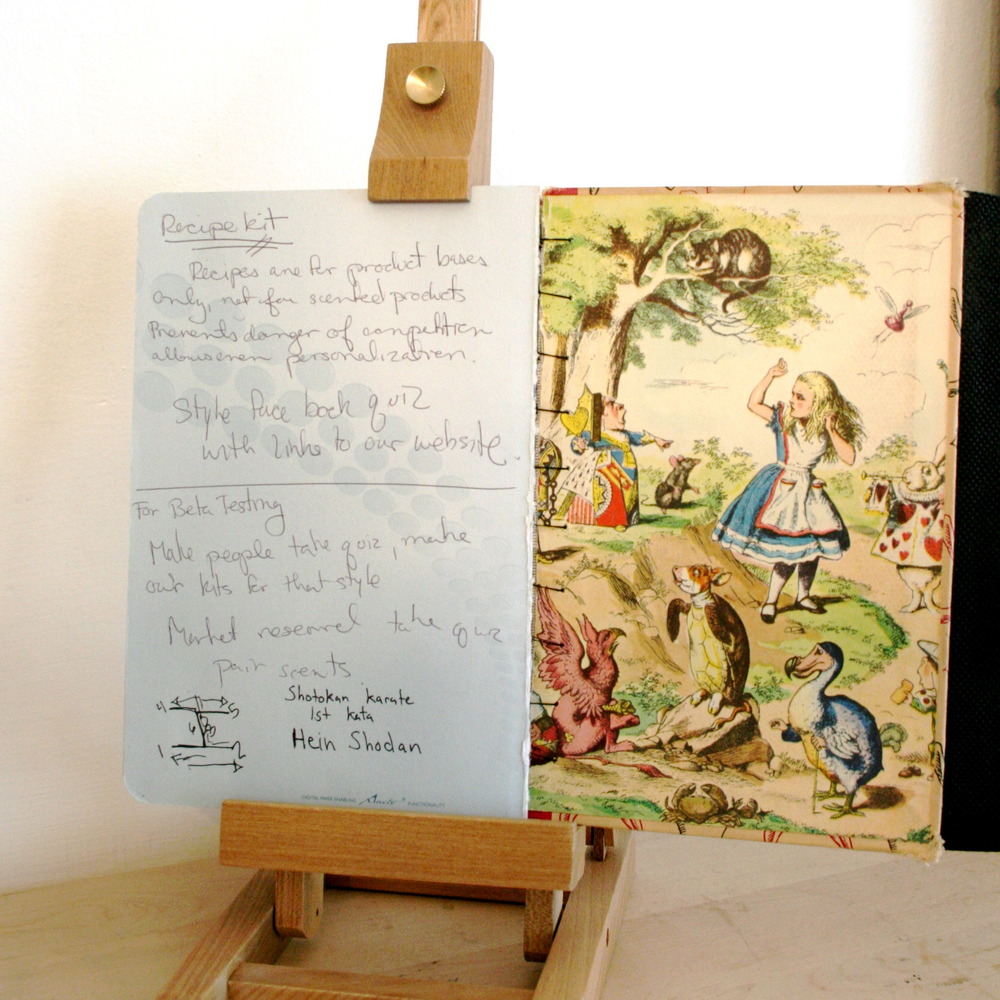 Recipe kit
Recipes are for product bases
only, not for scented products
Prevents danger of competition
allows even personalization.
Style face book quiz
with links to our website.
For Beta Testing
Make people take quiz, make
our kits for that style
Market research take quiz
pair scents
Shotokan karate
1st kata
Hein Shodan
4 5
1 2
DIGITAL PAPER ENABLING FUNCTIONALITY